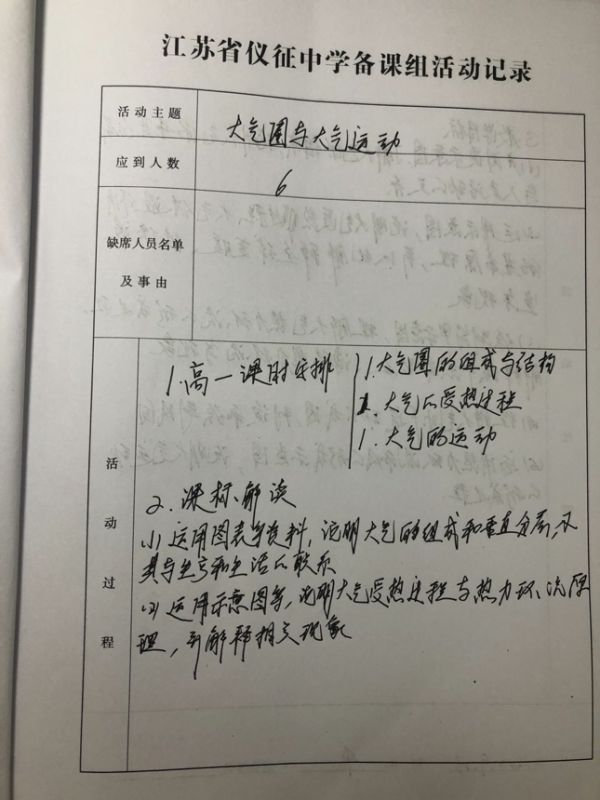 江苏省仪征中学备课组活动记录
活动主题
大气圈与大气运动
应到人数
6
缺席人员名单
及事由
活动过程
1.高一课时安排
1.大气圈的组成与结构
2.大气的受热过程
1.大气的运动
2.课标解读
(1)运用图表等资料,说明大气的组成和垂直分层,及
其与生产和生活的联系
(2)运用示意图等,说明大气受热过程与热力环流原
理,并解释相关现象